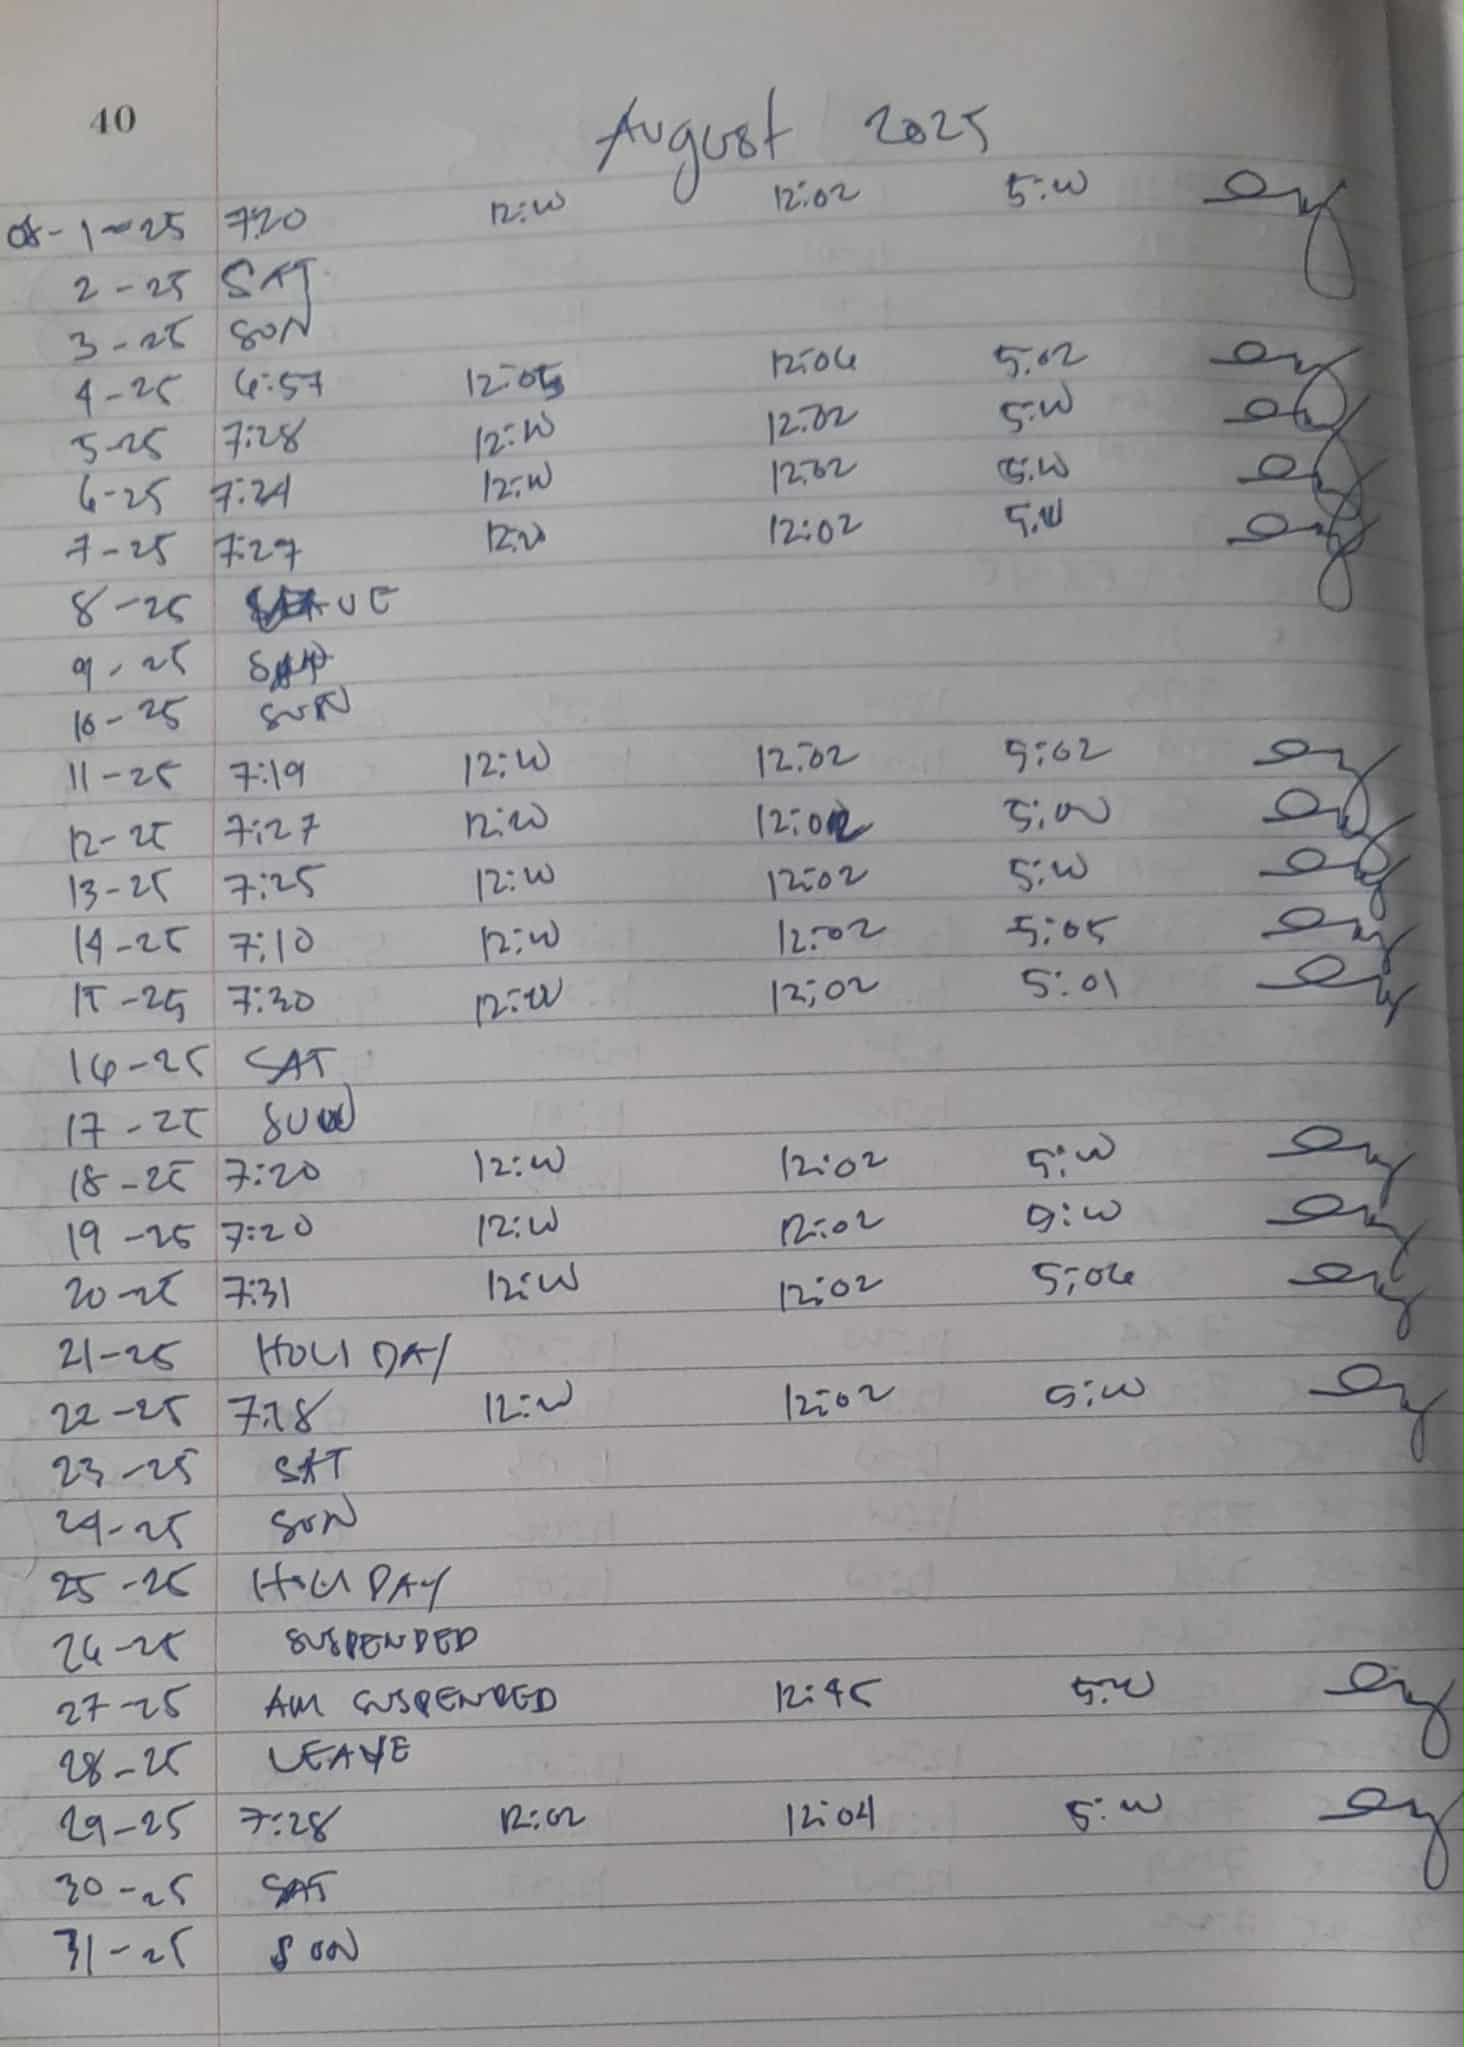 40
August 2025
08-1-25 7:20 12:00 12:02 5:00
2-25 SAT
3-25 SUN
4-25 6:57 12:05 12:06 5:02
5-25 7:28 12:00 12:02 5:00
6-25 7:24 12:00 12:02 5:00
7-25 7:27 12:00 12:02 5:00
8-25 LEAVE
9-25 SAT
10-25 SUN
11-25 7:19 12:00 12:02 5:02
12-25 7:27 12:00 12:02 5:00
13-25 7:25 12:00 12:02 5:00
14-25 7:10 12:00 12:02 5:05
15-25 7:30 12:00 12:02 5:01
16-25 SAT
17-25 SUN
18-25 7:20 12:00 12:02 5:00
19-25 7:20 12:00 12:02 5:00
20-25 7:31 12:00 12:02 5:06
21-25 HOLIDAY
22-25 12:00 12:02 5:00
23-25 SAT
24-25 SUN
25-25 HOLIDAY
26-25 SUSPENDED
27-25 AM SUSPENDED 12:45 5:00
28-25 LEAVE
29-25 7:28 12:02 12:04 5:00
30-25 SAT
31-25 SUN